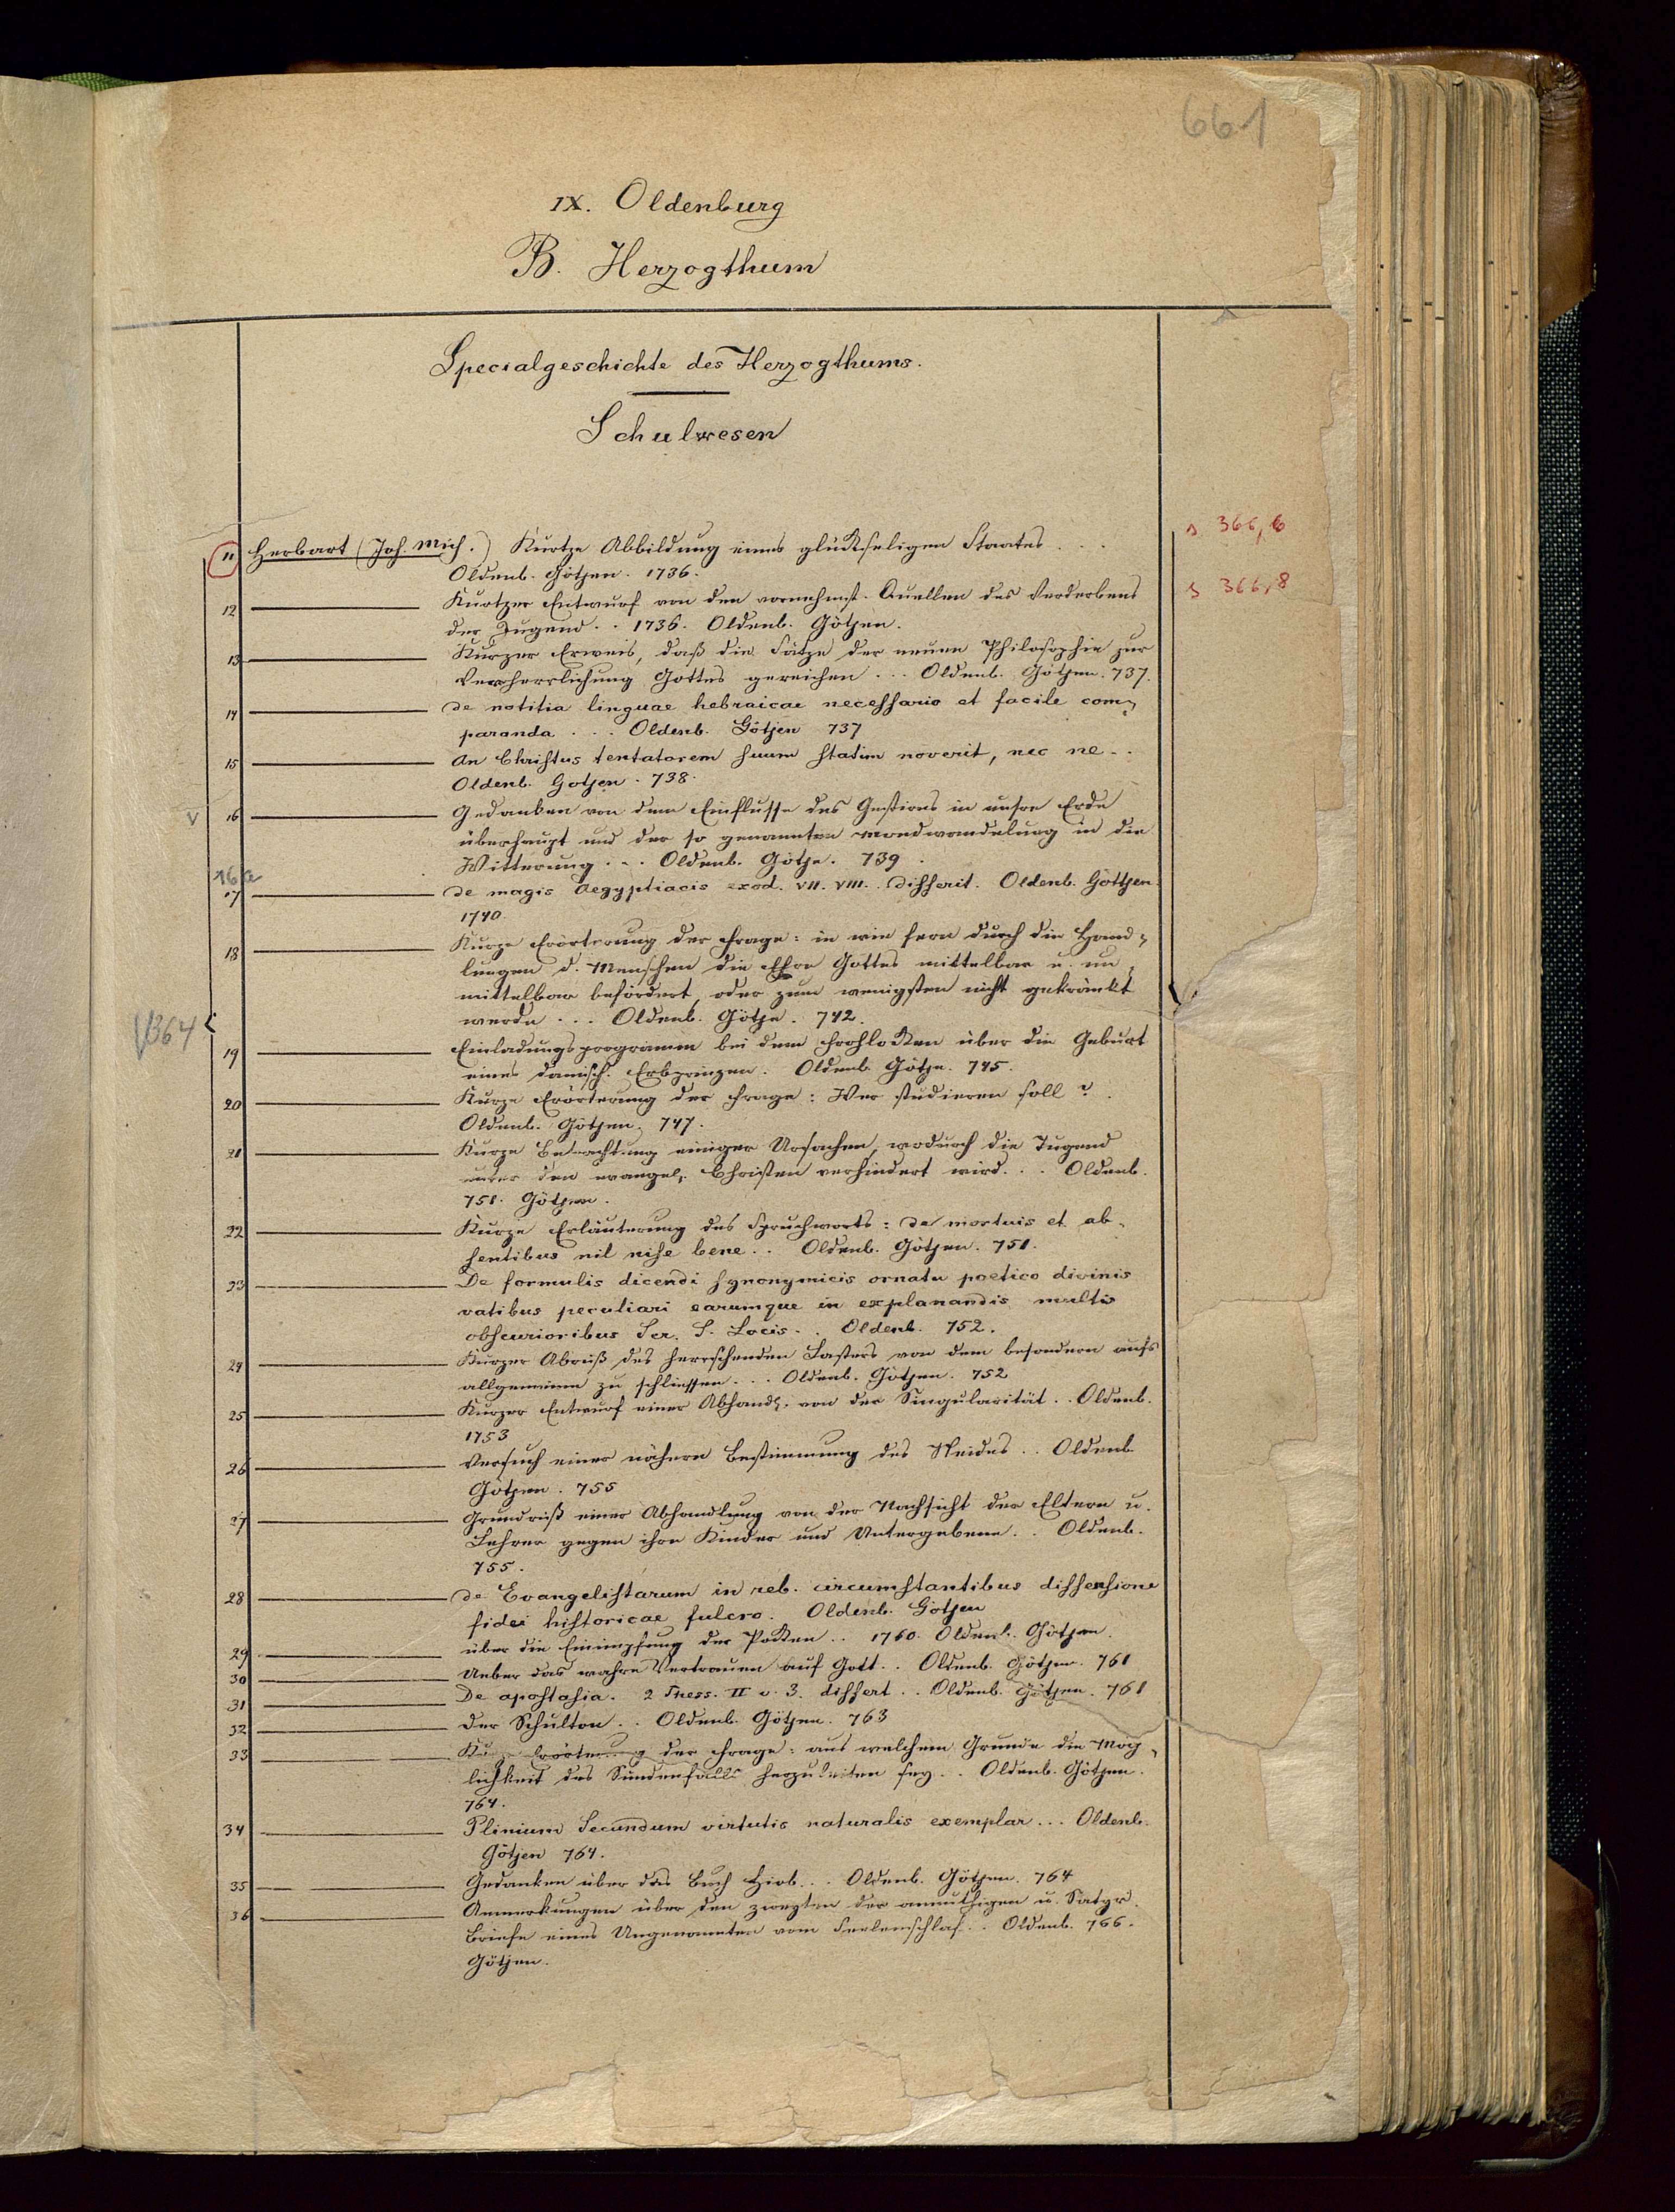 661
IX. Oldenburg
B. Herzogthum
Specialgeschichte des Herzogthums.
Schulwesen
s 366,6
11 Herbart (Joh. Mich.) Kurtze Abbildung eines glückseligen Staates . . .
Oldenb. Götjen. 1736.
s 366,8
12 Kurtzer Entwurf von den vornehmst. Quellen des Verderbens
der Jugend . . 1736. Oldenb. Götjen.
13 Kurzer Erweis, daß die Sätze der neuen Philosophie zur
Verherrlichung Gottes gereichen . . . Oldenb. Götjen. 737.
14 de notitia linguae hebraicae necessario et facile com-
paranda . . . Oldenb. Götjen 737
15 An Christus tentatorem suum statim noverit, nec ne . .
Oldenb. Gotjen . 738.
V 16 Gedanken von dem Einflusse des Gestirns in unsre Erde
überhaupt und der so genannten Mondwandelung in die
Witterung . . . Oldenb. Götje. 739.
16a
17 de magis Aegyptiacis exod. VII. VIII. . disserit. Oldenb. Göttjen.
1740.
18 Kurze Erörterung der Frage: in wie fern durch die Hand-
lungen d. Menschen die Ehre Gottes mittelbar u. un-
mittelbar befördert, oder zum wenigsten nicht gekränkt
werde . . . Oldenb. Götje. 742.
V364
19 Einladungsprogramm bei dem Frohlocken über die Geburt
eines dänisch. Erbprinzen. Oldenb. Götje. 745.
20 Kurze Erörterung der Frage: Wer studieren soll? .
Oldenb. Götjen. 747.
21 Kurze Betrachtung einiger Ursachen, wodurch die Tugend
unter den evangel. Christen verhindert wird. . . Oldenb.
751. Götjen.
22 Kurze Erläuterung des Spruchworts: de mortuis et ab-
sentibus nil nise bene . . Oldenb. Götjen. 751.
23 De formulis dicendi synonymicis ornatu poetico divinis
vatibus peculiari earumque in explanandis multis
obscurioribus Scr. S. Locis . . Oldenb. 752.
24 Kurzer Abriß des herrschenden Lasters von dem besondern aufs
allgemeine zu schliessen . . . Oldenb. Götjen. 752
25 Kurzer Entwurf einer Abhandl. von der Singularität . . Oldenb.
1753
26 Versuch einer nähern Bestimmung des Neides . . Oldenb
Götjen. 755
27 Grundriß einer Abhandlung von der Nachsicht der Eltern u.
Lehrer gegen ihre Kinder und Untergebene . . Oldenb.
755.
28 de Evangelistarum in reb. circumstantibus dissensione
fidei historicae fulcro. Oldenb. Götjen
29 über die Einimpfung der Pocken . . 1760. Oldenb. Götjen.
30 Ueber das wahre Vertrauen auf Gott . . Oldenb. Götjen. 761
31 De apostasia. 2 Thess. II v. 3. dissert . . Oldenb. Götjen. 761
32 Der Schulton . . Oldenb. Götjen. 763
33 Kurze Erörterung der Frage: aus welchem Grunde die Mög-
lichkeit des Sündenfalls herzuleiten sey . . Oldenb. Götjen.
764.
34 Plinium Secundum virtutis naturalis exemplar . . . Oldenb.
Götjen 764.
35 Gedanken über das Buch Hiob . . . Oldenb. Götjen. 764
36 Anmerkungen über den zweyten der anmuthigen u. Satyr.
Briefe eines Ungenannten vom Seelenschlaf . . Oldenb. 766.
Götjen.